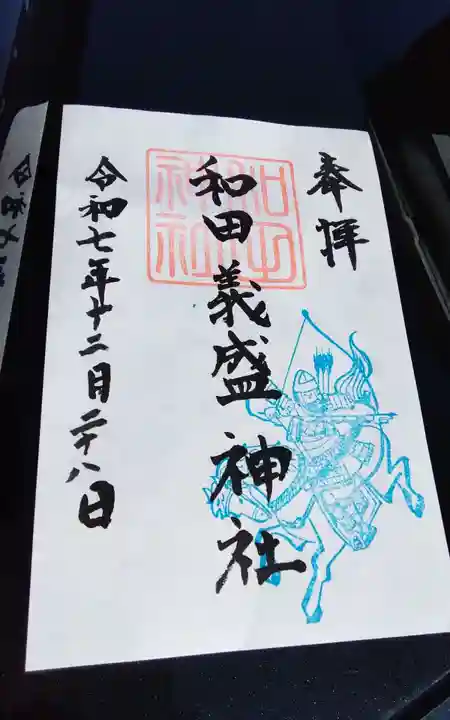 奉拝
和田義盛神社
令和七年十二月二十八日